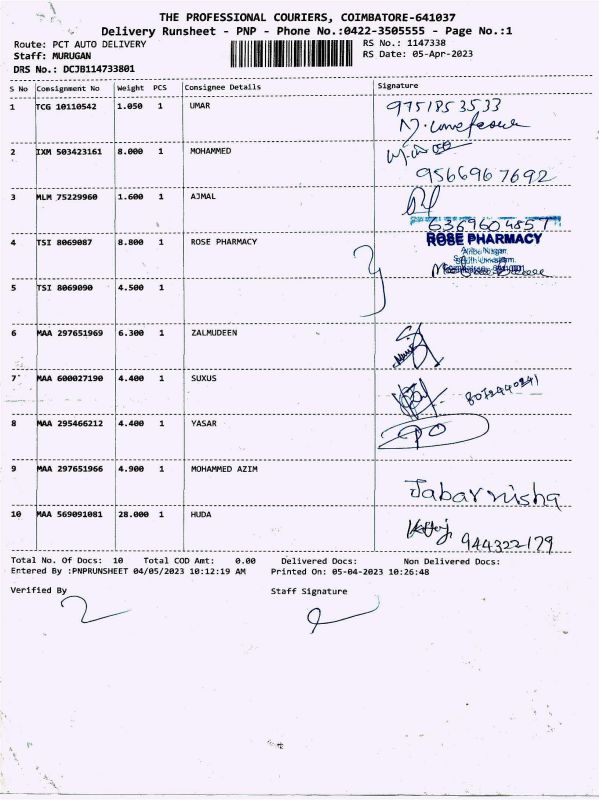 THE PROFESSIONAL COURIERS, COIMBATORE-641037
Delivery Runsheet - PNP - Phone No.:0422-3505555 - Page No.:1
Route: PCT AUTO DELIVERY RS No.: 1147338
Staff: MURUGAN RS Date: 05-Apr-2023
DRS No.: DCJB114733801
S No Consignment No Weight PCS Consignee Details Signature
1 TCG 10110542 1.050 1 UMAR 9751853533
2 IXM 503423161 8.000 1 MOHAMMED
9566967692
3 MLM 75229960 1.600 1 AJMAL
6369604857
4 TSI 8069087 8.800 1 ROSE PHARMACY ROSE PHARMACY
5 TSI 8069090 4.500 1
6 MAA 297651969 6.300 1 ZALMUDEEN
7 MAA 600027190 4.400 1 SUXUS 8072440341
8 MAA 295466212 4.400 1 YASAR
9 MAA 297651966 4.900 1 MOHAMMED AZIM Jabarnisha
10 MAA 569091081 28.000 1 HUDA
Total No. Of Docs: 10 Total COD Amt: 0.00 Delivered Docs: Non Delivered Docs:
Entered By :PNPRUNSHEET 04/05/2023 10:12:19 AM Printed On: 05-04-2023 10:26:48
Verified By Staff Signature